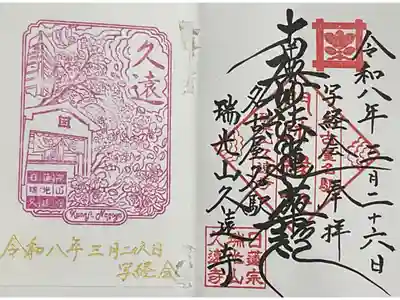 久遠
日蓮宗
瑞光山
久遠寺
Kuonji Nagoya
令和八年三月二六日
写経会
令和八年三月二十六日
写経会奉拝
南無妙法蓮華経
瑞光山久遠寺